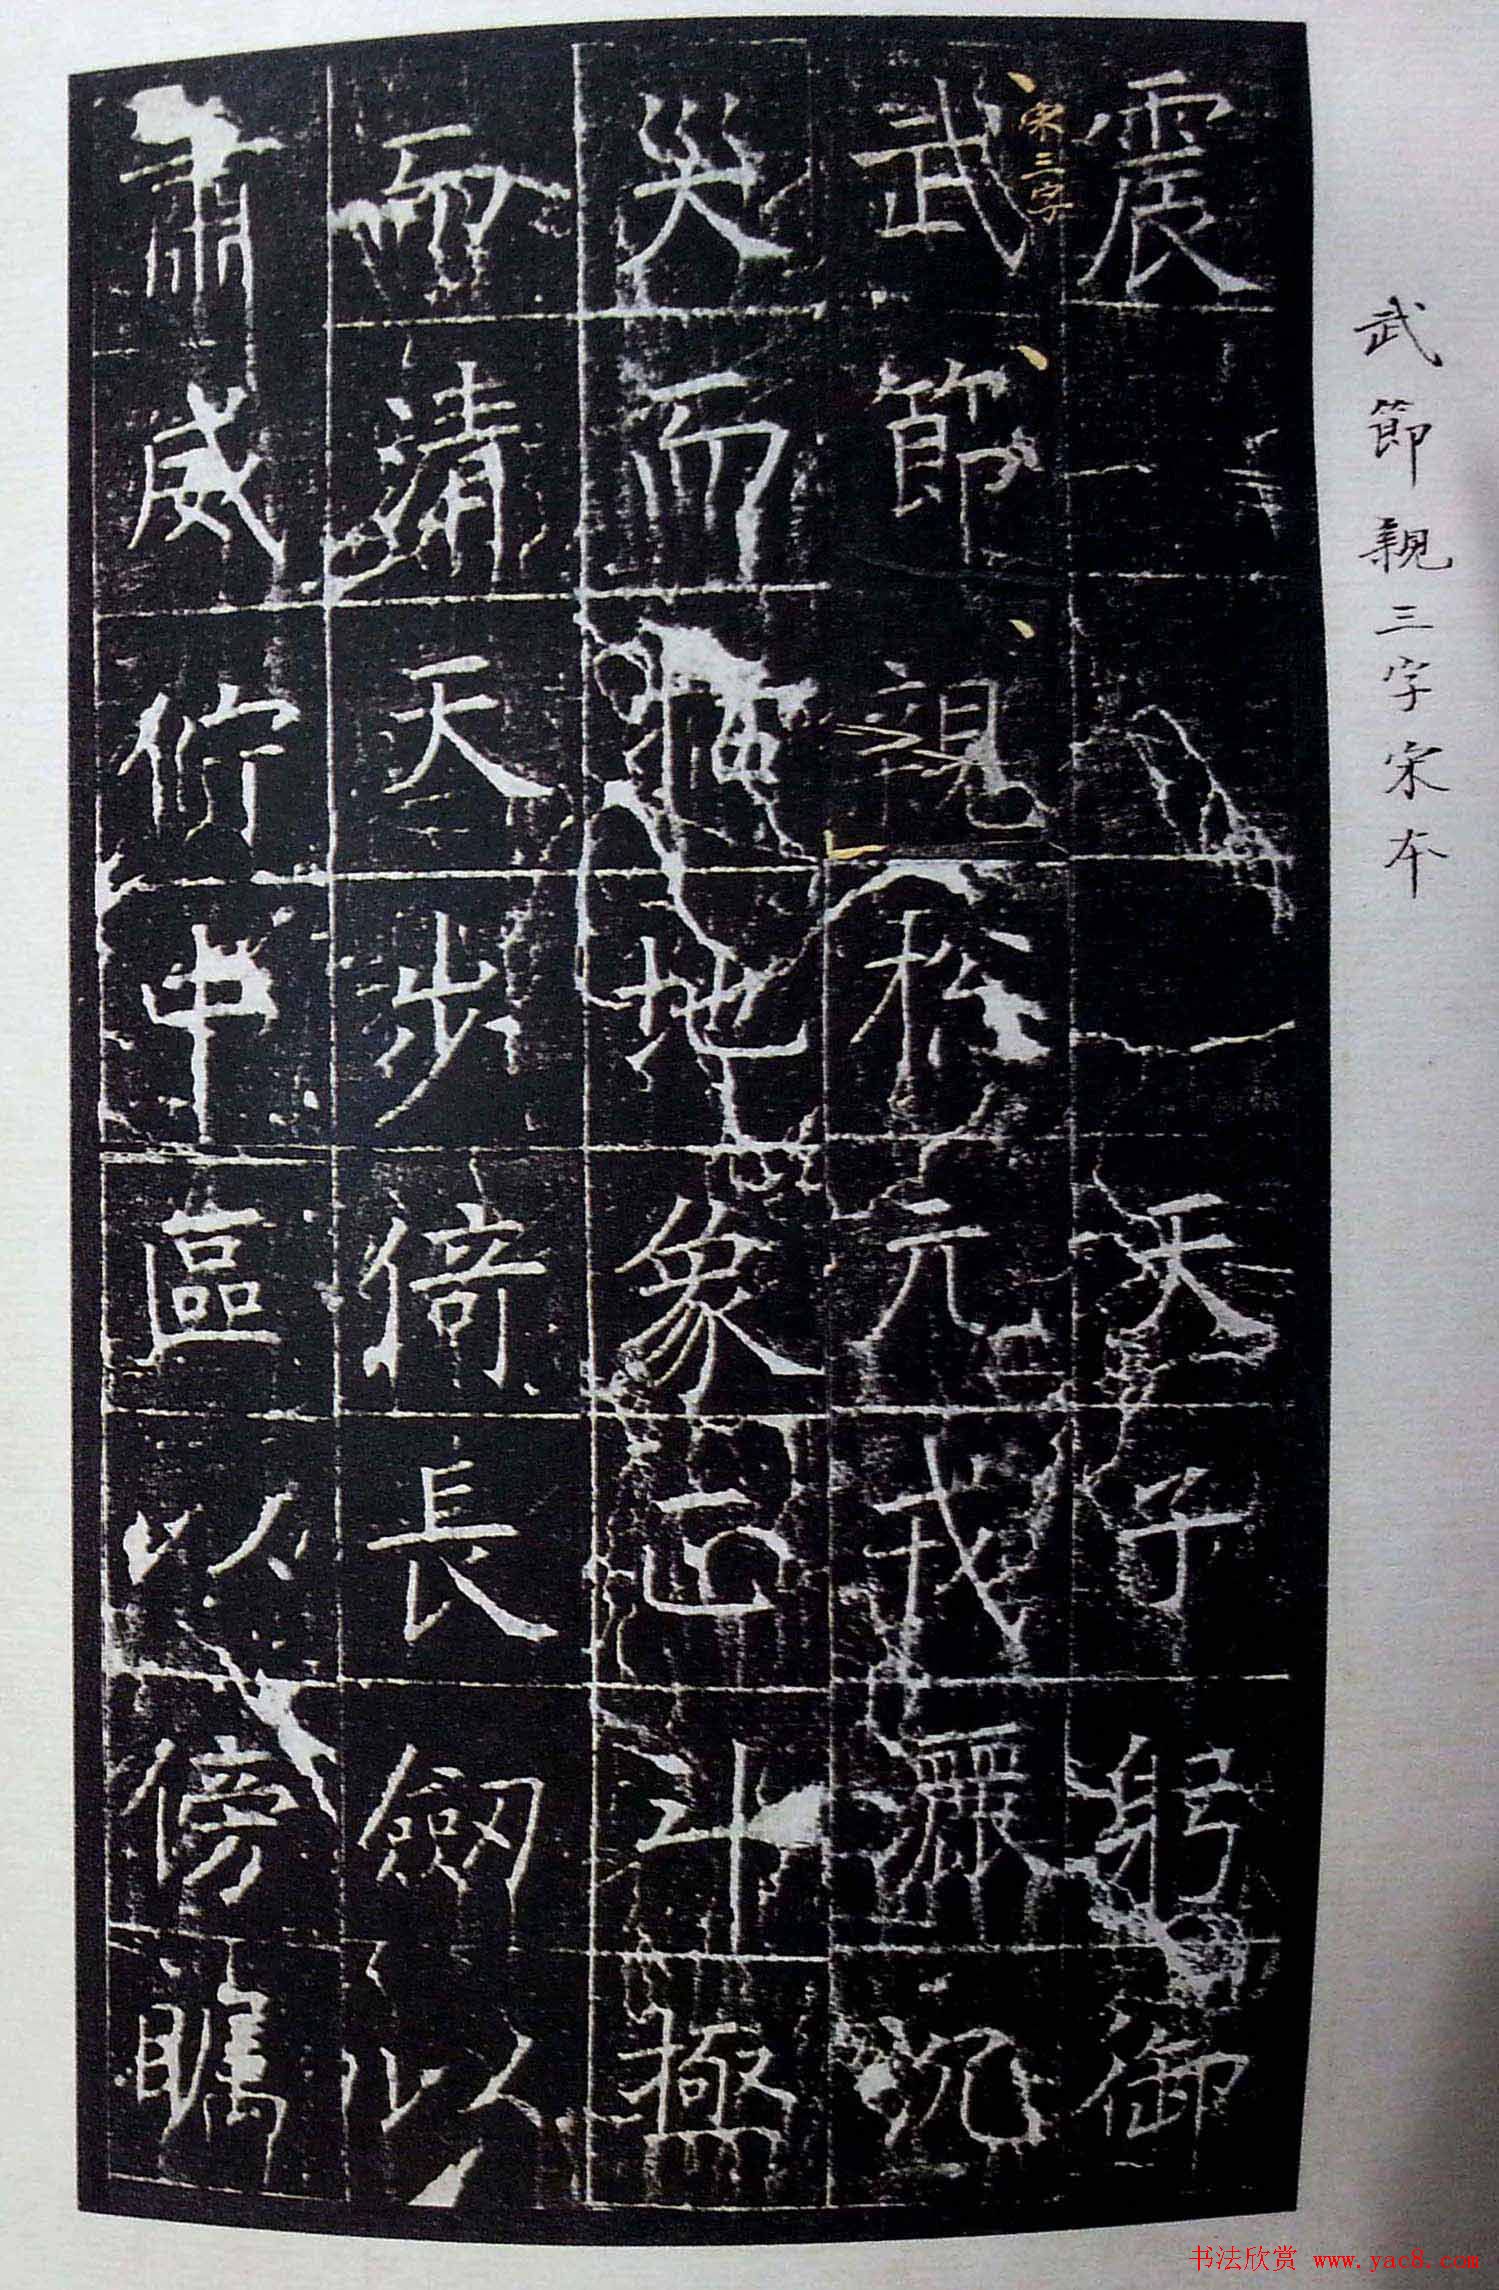 武節親三字宋本
震天子躬御
宋三字
武節親元戎灑沉
災而地象正斗極
而清天步倚長劒以
肅威佇中區以傍矚
书法欣赏 www.yac8.com